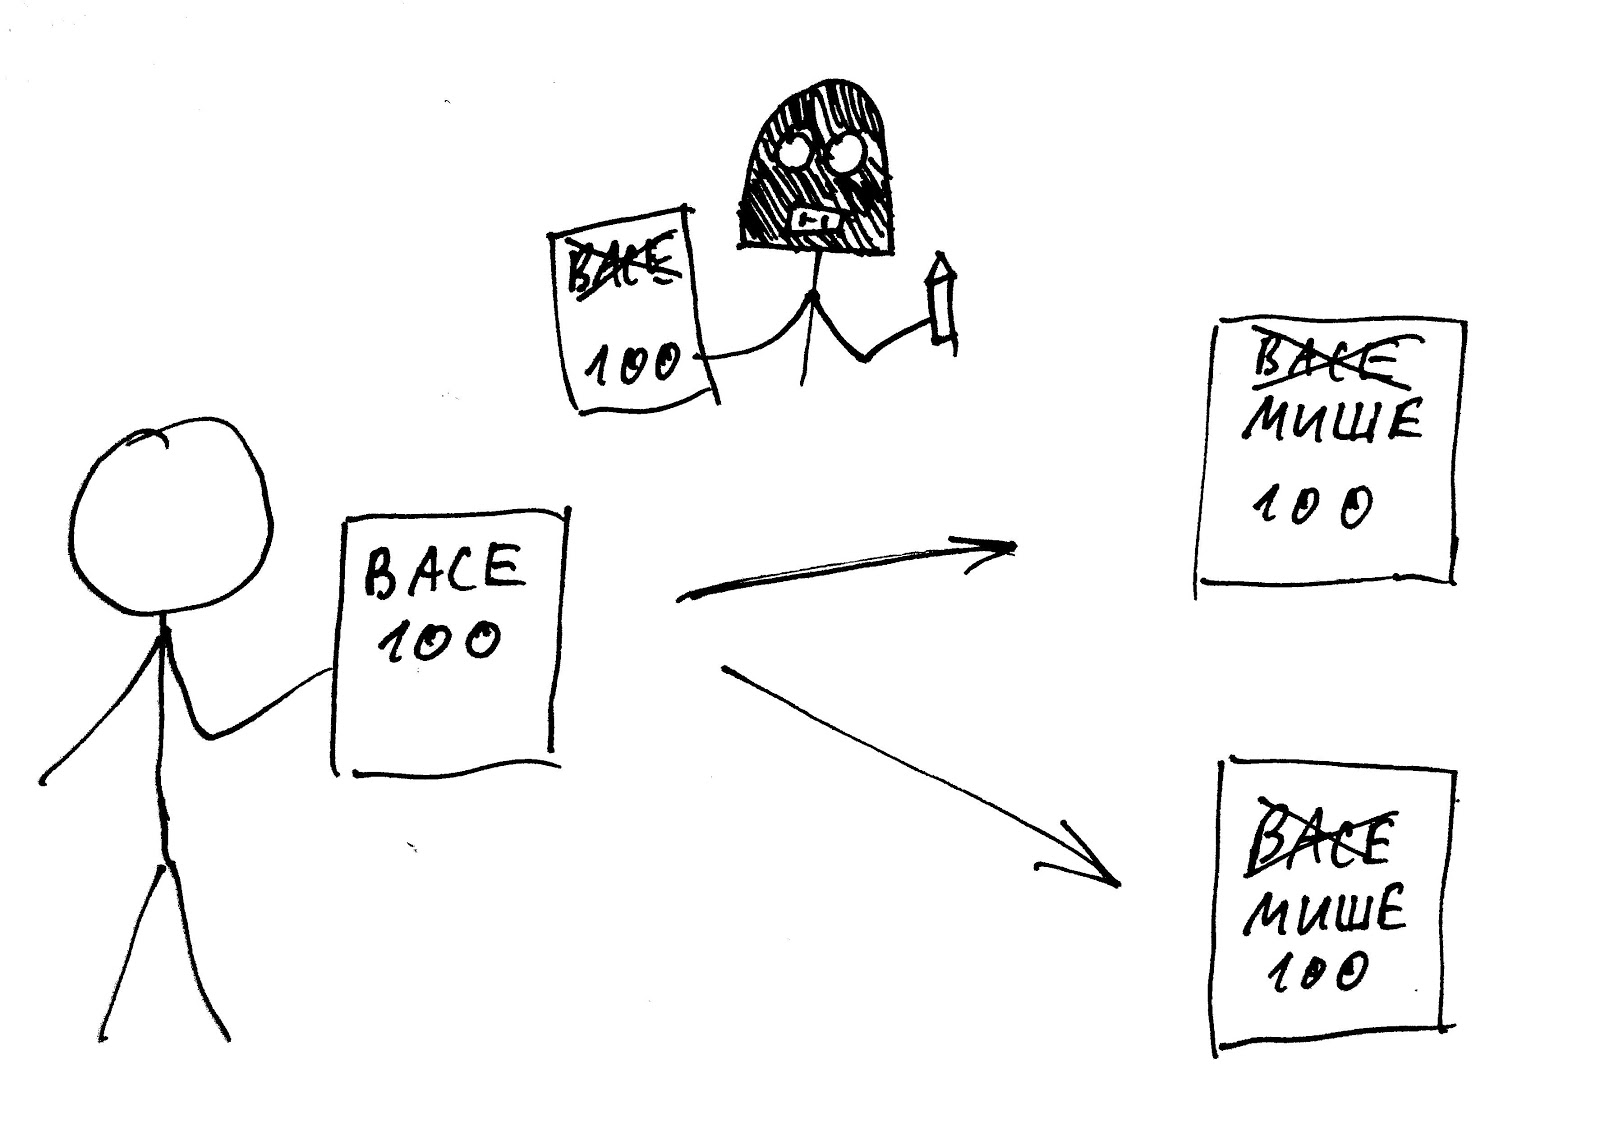 ВАСЕ
100
ВАСЕ
100
ВАСЕ
МИШЕ
100
ВАСЕ
МИШЕ
100